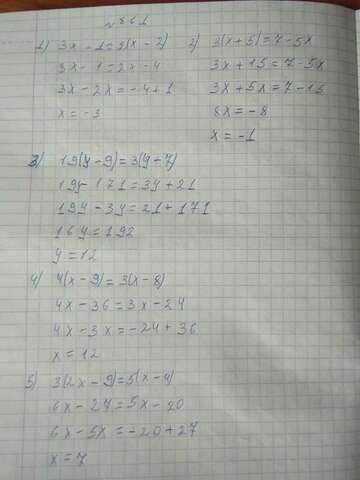 № 661
1) 3x - 1 = 2(x - 2)
3x - 1 = 2x - 4
3x - 2x = -4 + 1
x = -3
2) 3(x + 5) = 7 - 5x
3x + 15 = 7 - 5x
3x + 5x = 7 - 15
8x = -8
x = -1
3) 19(y - 9) = 3(y + 7)
19y - 171 = 3y + 21
19y - 3y = 21 + 171
16y = 192
y = 12
4) 4(x - 9) = 3(x - 8)
4x - 36 = 3x - 24
4x - 3x = -24 + 36
x = 12
5) 3(2x - 9) = 5(x - 4)
6x - 27 = 5x - 20
6x - 5x = -20 + 27
x = 7